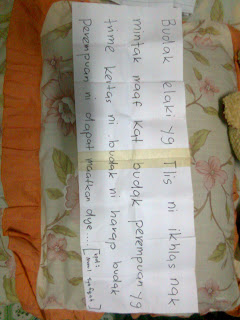 Budak lelaki yg Tlis ni ikhlas nak
mintak maaf kat budak perempuan yg
trime kertas ni. budak ni harap budak
perempuan ni dapat maafkan dye...